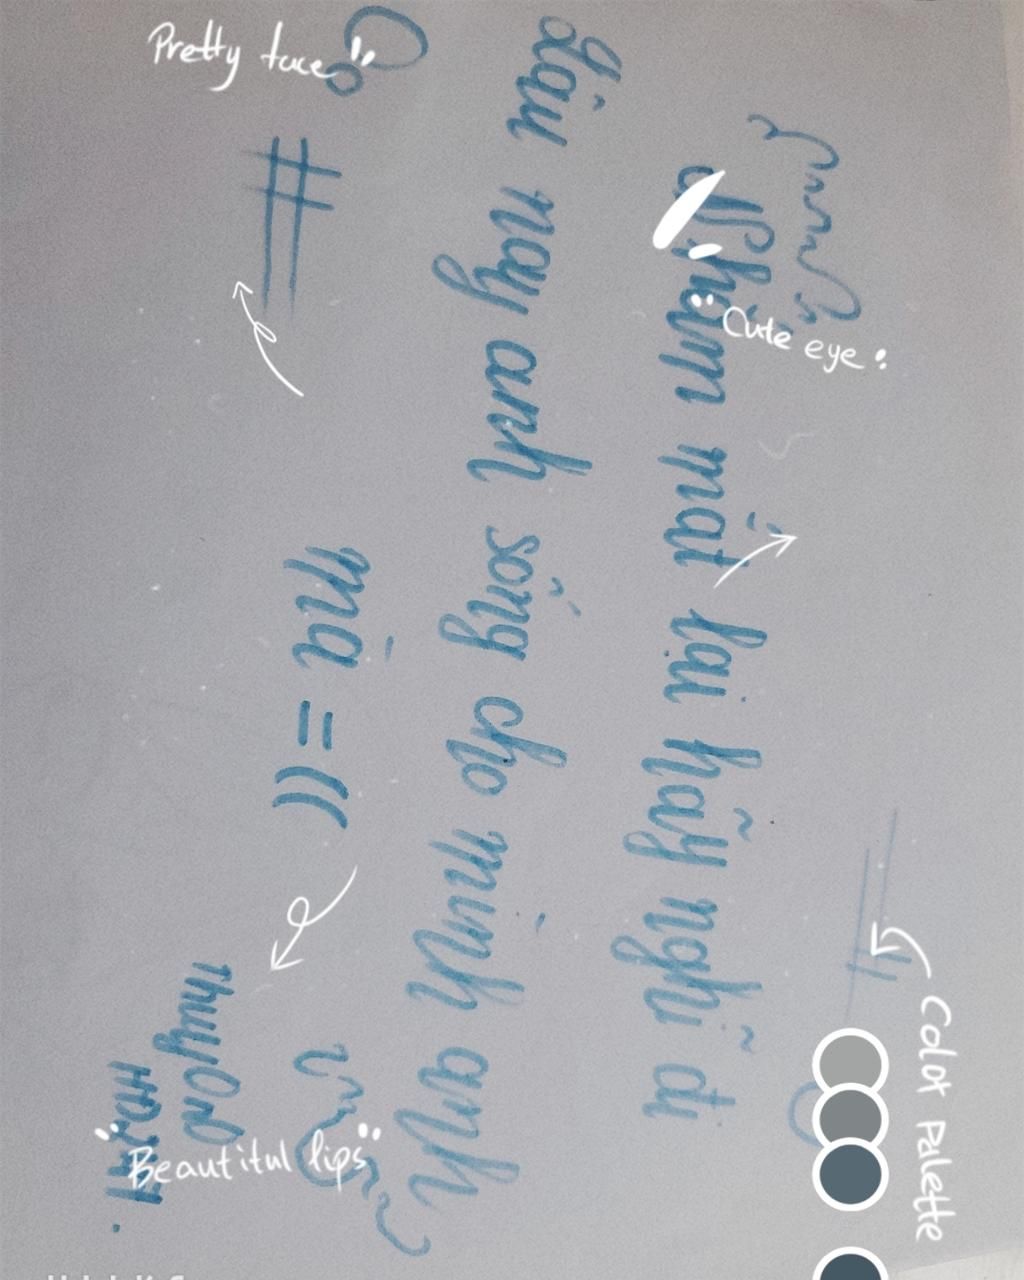 Nhắm mắt lại hãy nghĩ đi
Lâu nay anh sống cho mình anh
mà = ((
Pretty face
Cute eye
Color palette
Beautiful lips